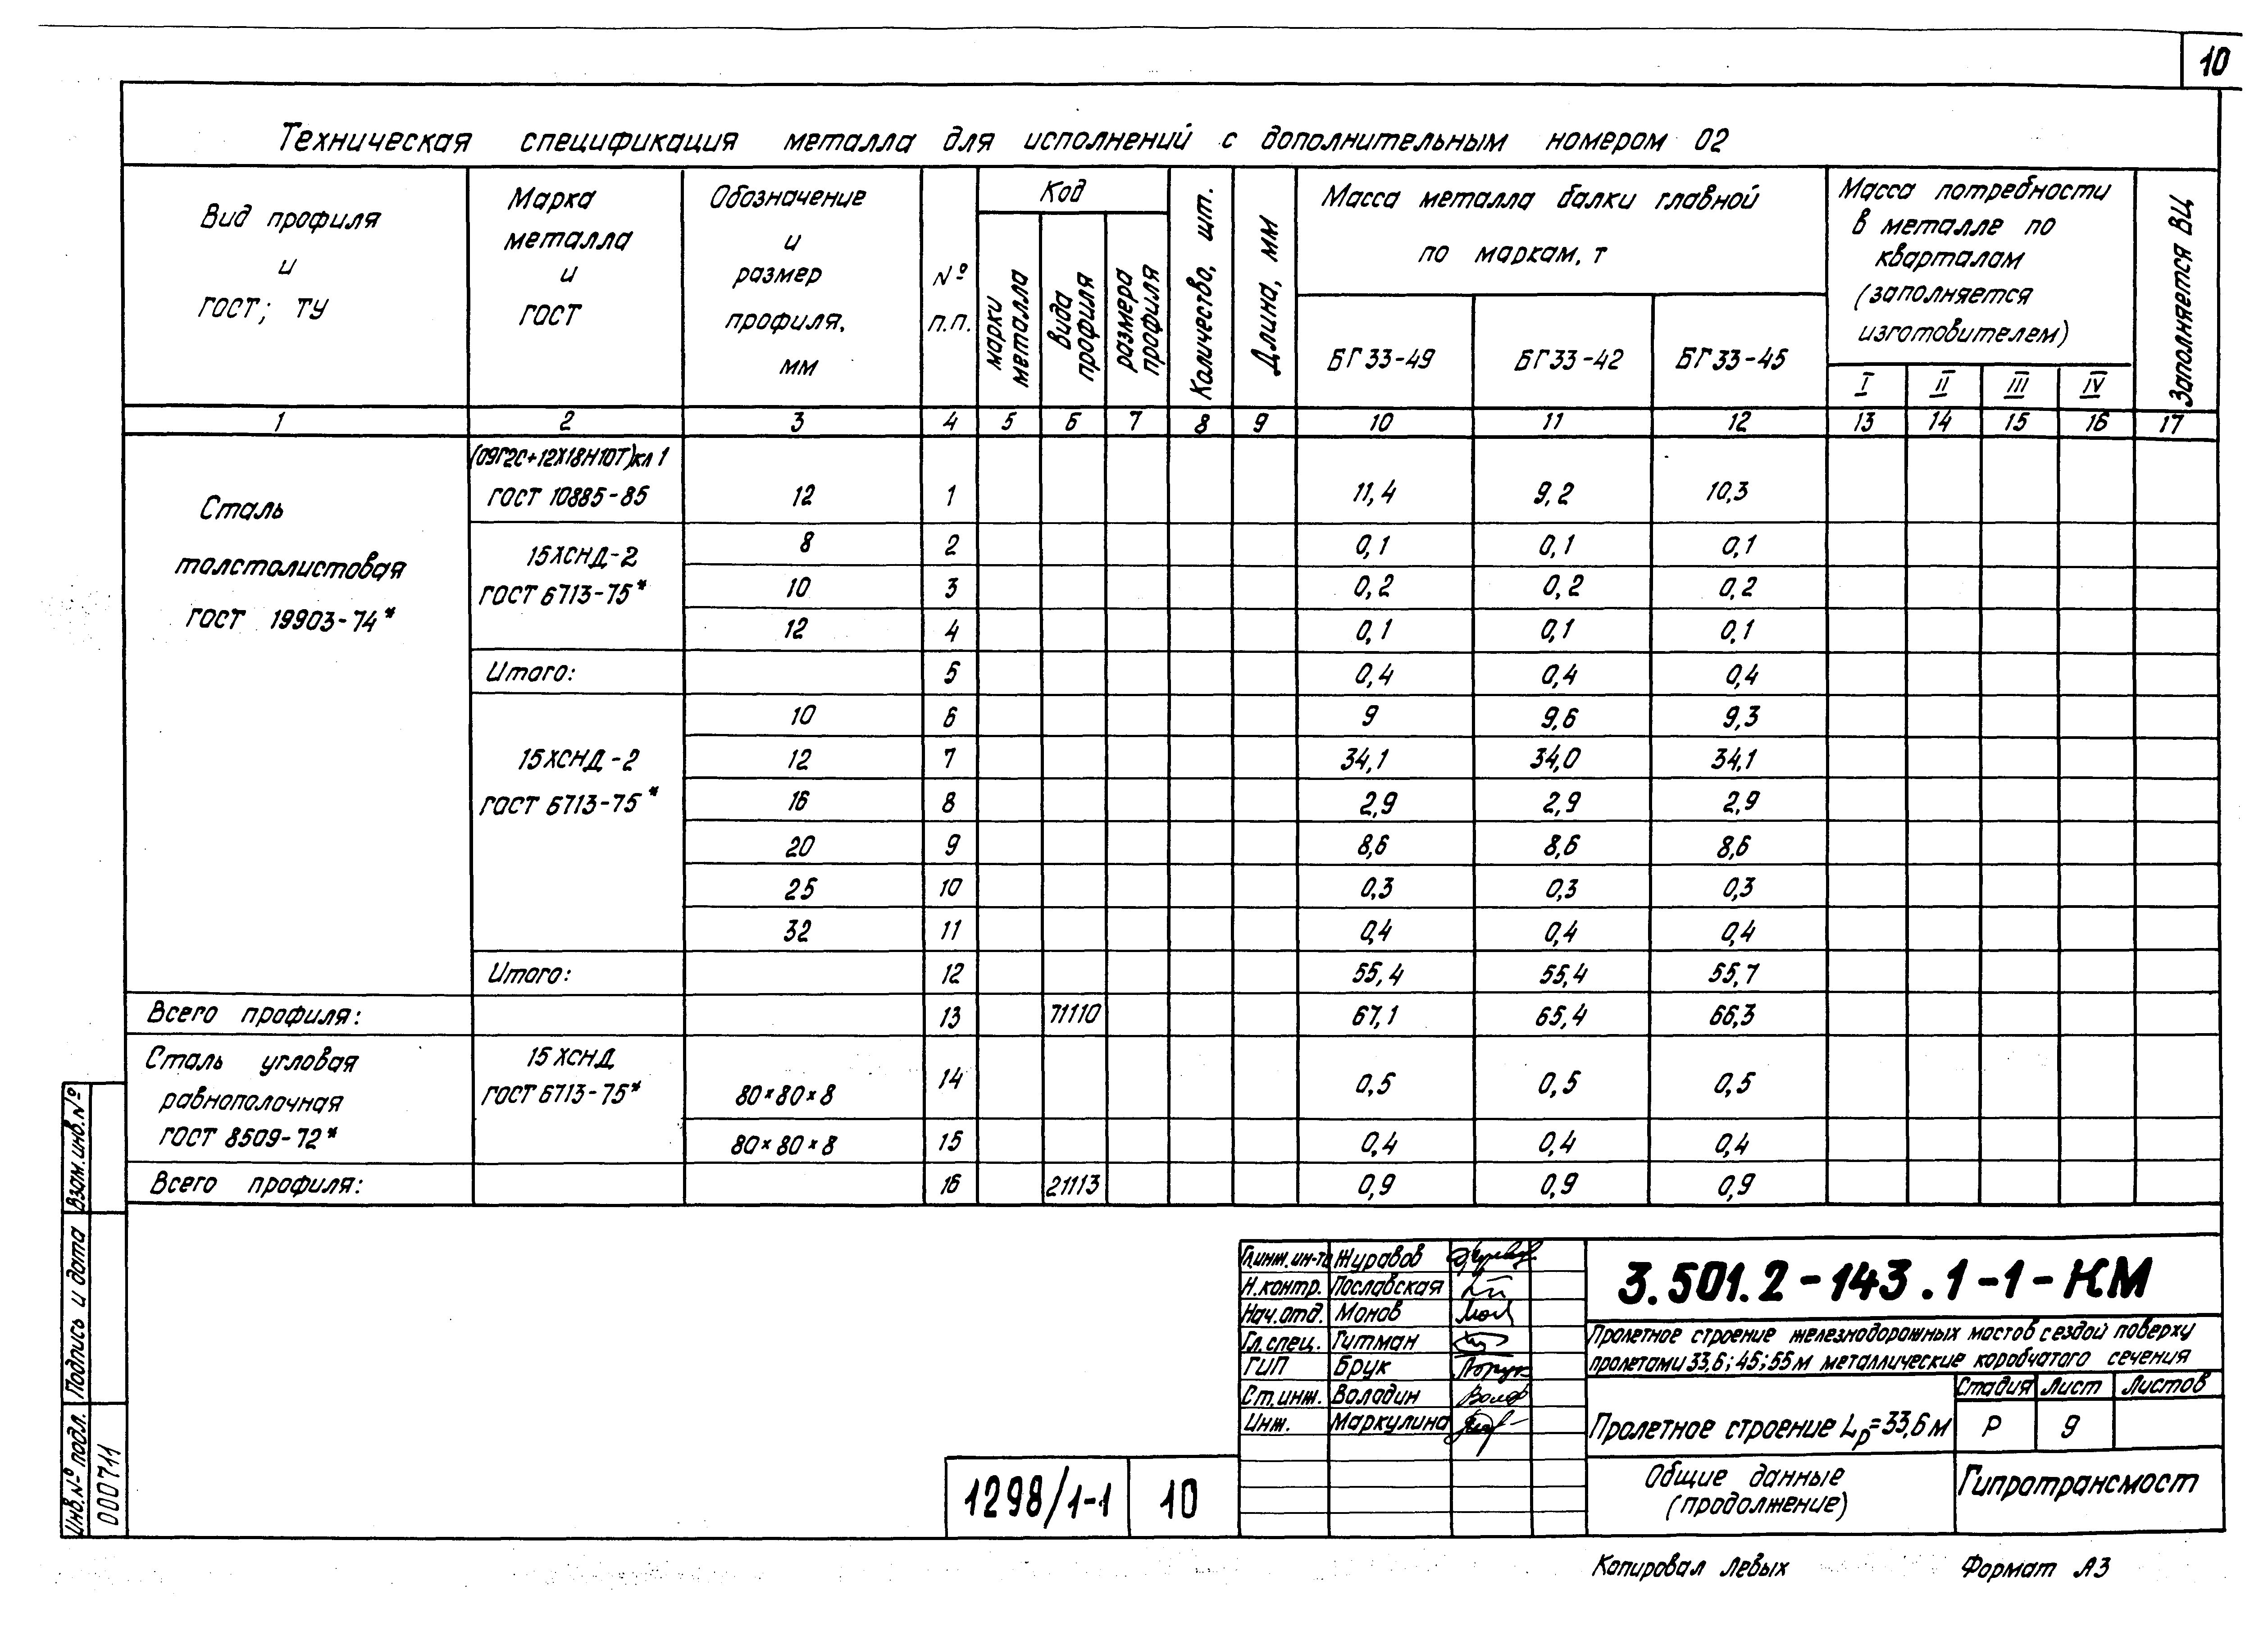 10
Техническая спецификация металла для исполнений с дополнительным номером 02
Вид профиля
и
ГОСТ; ТУ
Марка
металла
и
ГОСТ
Обозначение
и
размер
профиля,
мм
№
п.п.
Код
марки металла
вида профиля
размера профиля
Количество, шт.
Длина, мм
Масса металла балки главной
по маркам, т
БГ33-49 БГ33-42 БГ33-45
Масса потребности
в металле по
кварталам
(заполняется
изготовителем)
I II III IV
Заполняется ВЦ
1 2 3 4 5 6 7 8 9 10 11 12 13 14 15 16 17
Сталь
толстолистовая
ГОСТ 19903-74*
(09Г2С+12Х18Н10Т)кл 1
ГОСТ 10885-85 12 1 11,4 9,2 10,3
15ХСНД-2
ГОСТ 6713-75*
8 2 0,1 0,1 0,1
10 3 0,2 0,2 0,2
12 4 0,1 0,1 0,1
Итого: 5 0,4 0,4 0,4
15ХСНД-2
ГОСТ 6713-75*
10 6 9 9,6 9,3
12 7 34,1 34,0 34,1
16 8 2,9 2,9 2,9
20 9 8,6 8,6 8,6
25 10 0,3 0,3 0,3
32 11 0,4 0,4 0,4
Итого: 12 55,4 55,4 55,7
Всего профиля: 13 71110 67,1 65,4 66,3
Сталь угловая
равнополочная
ГОСТ 8509-72*
15ХСНД
ГОСТ 6713-75*
80×80×8 14 0,5 0,5 0,5
80×80×8 15 0,4 0,4 0,4
Всего профиля: 16 21113 0,9 0,9 0,9
Взам.инв.№
Подпись и дата
Инв.№ подл.
000711
1298/1-1 10
Гл.инж.ин-та Журавов
Н.контр. Пославская
Нач.отд. Монов
Гл.спец. Гитман
ГИП Брук
Ст.инж. Володин
Инж. Маркулина
3.501.2-143.1-1-КМ
Пролетное строение железнодорожных мостов с ездой поверху
пролетами 33,6; 45; 55м металлические коробчатого сечения
Пролетное строение Lр=33,6м
Стадия Лист Листов
Р 9
Общие данные
(продолжение)
Гипротрансмост
Копировал Левых Формат А3